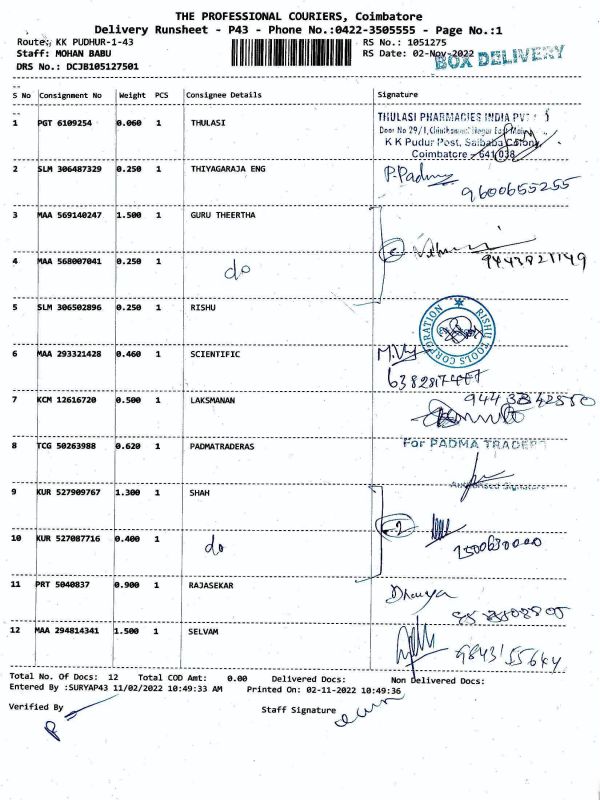 THE PROFESSIONAL COURIERS, Coimbatore
Delivery Runsheet - P43 - Phone No.:0422-3505555 - Page No.:1
Route: KK PUDHUR-1-43 RS No.: 1051275
Staff: MOHAN BABU RS Date: 02-Nov-2022
BOX DELIVERY
DRS No.: DCJB105127501
S No Consignment No Weight PCS Consignee Details Signature
1 PGT 6109254 0.060 1 THULASI
THULASI PHARMACIES INDIA PVT
Door No 29/1,
K K Pudur Post, Saibaba Colony,
Coimbatore - 641 038
2 SLM 306487329 0.250 1 THIYAGARAJA ENG P.Padma
9600655255
3 MAA 569140247 1.500 1 GURU THEERTHA
4 MAA 568007041 0.250 1 do
5 SLM 306502896 0.250 1 RISHU RISHU TOOLS CORPORATION
6 MAA 293321428 0.460 1 SCIENTIFIC
7 KCM 12616720 0.500 1 LAKSMANAN
8 TCG 50263988 0.620 1 PADMATRADERAS For PADMA TRADERS
Authorised Signatore
9 KUR 527909767 1.300 1 SHAH
10 KUR 527087716 0.400 1 do
11 PRT 5040837 0.900 1 RAJASEKAR
12 MAA 294814341 1.500 1 SELVAM
9843155644
Total No. Of Docs: 12 Total COD Amt: 0.00 Delivered Docs: Non Delivered Docs:
Entered By :SURYAP43 11/02/2022 10:49:33 AM Printed On: 02-11-2022 10:49:36
Verified By Staff Signature